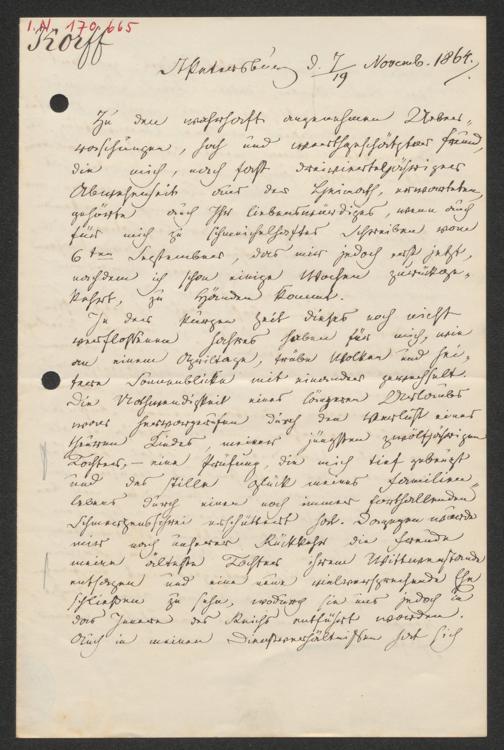 I.N. 170.665
Korff
St Petersburg d. 7/19 Novemb. 1864.
Zu den wahrhaft angenehmen Ueber-
raschungen, hoch und werthgeschätzter Freund,
die mich, nach fast dreivierteljähriger
Abwesenheit aus der Heimath, erwarteten,
gehörte auch Ihr liebenswürdiges, wenn auch
für mich zu schmeichelhaftes Schreiben vom
6ten September, das mir jedoch erst jetzt,
nachdem ich schon einige Wochen zurückge-
kehrt, zu Händen kommt.
In der kurzen Zeit dieses noch nicht
verflossenen Jahres haben für mich, wie
an einem Apriltage, trübe Wolken und hei-
tere Sonnenblicke mit einander gewechselt.
Die Nothwendigkeit eines längeren Urlaubs
war hervorgerufen durch den Verlust eines
theuren Kindes, meiner jüngsten zwölfjährigen
Tochter, – eine Prüfung, die mich tief gebeugt
und das stille Glück meines Familien-
lebens durch einen noch immer forthallenden
Schmerzensschrei erschüttert hat. Dagegen wurde
mir nach unserer Rückkehr die Freude
meine älteste Tochter ihrem Wittwenstande
entsagen und eine neue vielversprechende Ehe
schließen zu sehn, wodurch sie uns jedoch in
das Innere des Reichs entführt worden.
Auch in meinen Dienstverhältnissen hat sich